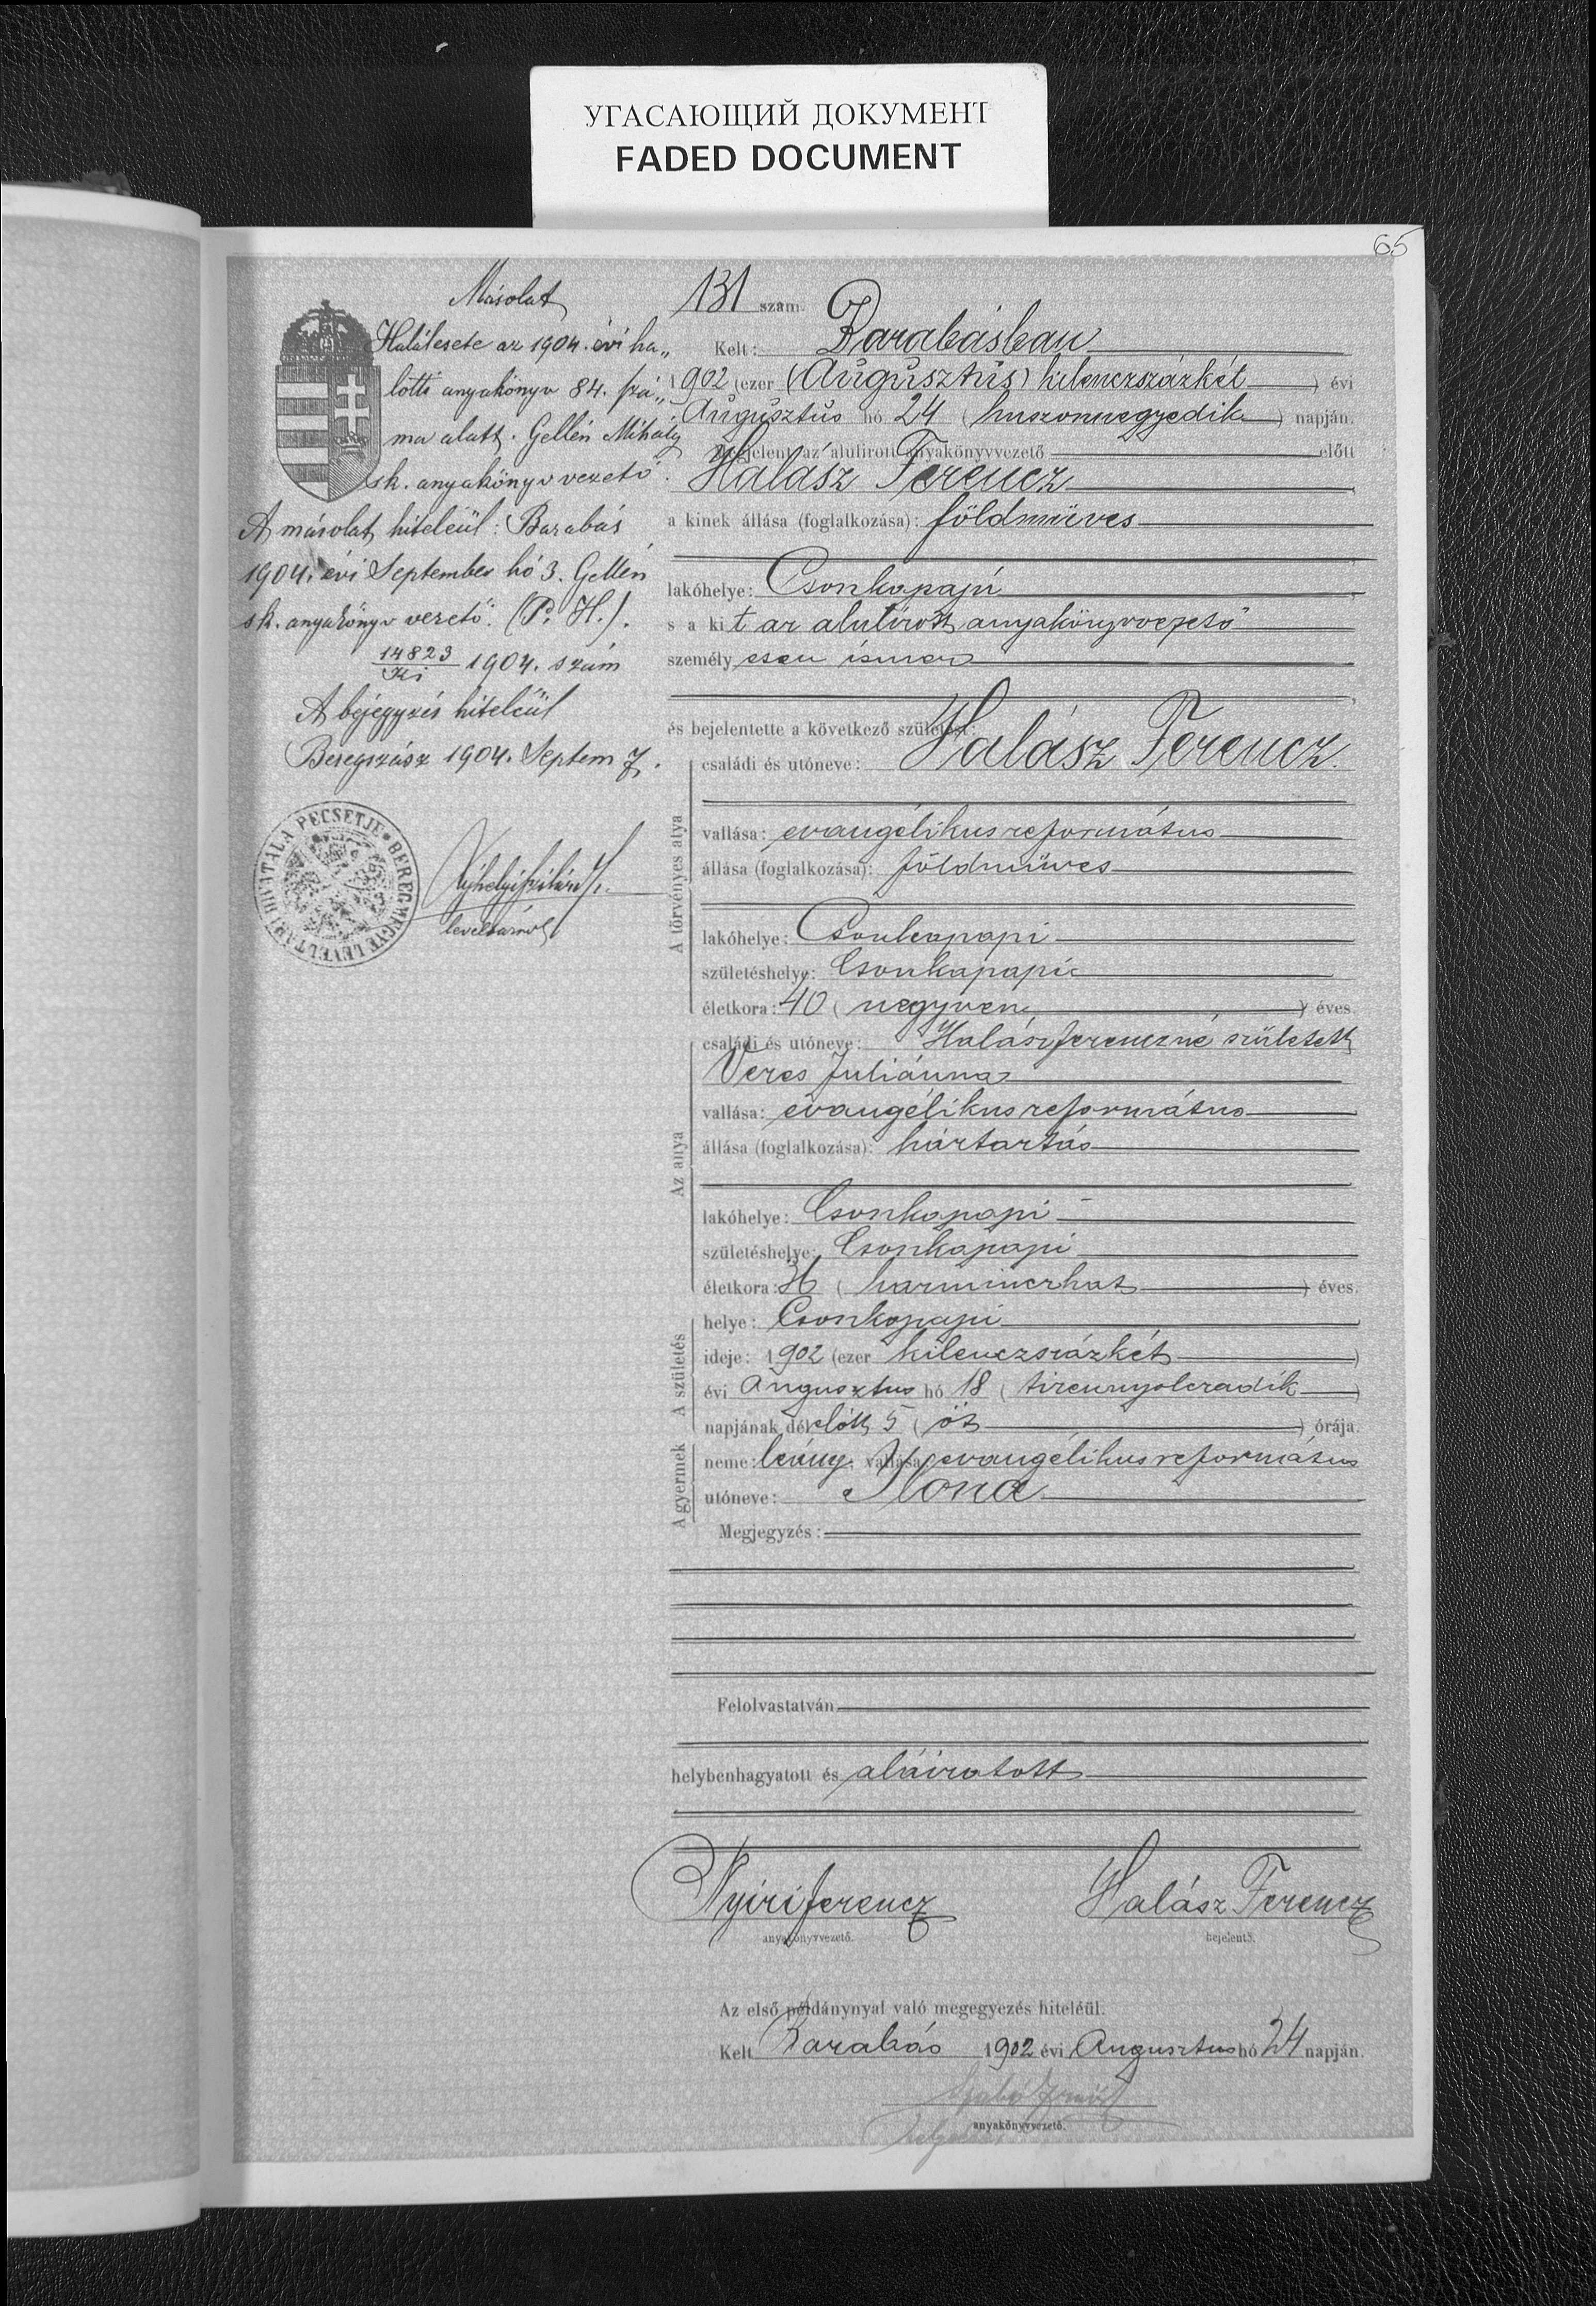 УГАСАЮЩИЙ ДОКУМЕНТ
FADED DOCUMENT
65
Másolat
Halálesete az 1904. évi ha„
lotti anyakönyv 84. szá„
ma alatt. Gellén Mihály
sk. anyakönyvvezető.
A másolat hiteléül: Barabás
1904. évi September hó 3. Gellén
sk. anyakönyvvezető. (P. H.).
14823
Ki 1904. szám
A bejegyzés hiteléül
Beregszász 1904. Septem 7.
BEREGMEGYE LEVÉLTÁRI HIVATALA PECSÉTJE
levéltárnok
131 szám.
Kelt: Barabásban
1902 (ezer (Augusztus) kilenczszázkét) évi
Augusztus hó 24 (huszonnegyedik) napján.
Megjelent az alulirott anyakönyvvezető előtt
Halász Ferencz
a kinek állása (foglalkozása): földmüves
lakóhelye: Csonkapapi
s a kit az alulirott anyakönyvvezető
személyesen ismer
és bejelentette a következő születést:
A törvényes atya
családi és utóneve: Halász Ferencz.
vallása: evangélikus református
állása (foglalkozása): földmüves
lakóhelye: Csonkapapi
születéshelye: Csonkapapi
életkora: 40 (negyven) éves.
Az anya
családi és utóneve: Halász Ferenczné született
Veres Juliánna
vallása: evangélikus református
állása (foglalkozása): háztartás
lakóhelye: Csonkapapi
születéshelye: Csonkapapi
életkora: 36 (harminczhat) éves.
A születés
helye: Csonkapapi
ideje: 1902 (ezer kilenczszázkét)
évi Augusztus hó 18 (tizennyolczadik)
napjának délelőtt 5 (öt) órája.
A gyermek
neme: leány. vallása: evangélikus református
utóneve: Ilona
Megjegyzés:
Felolvastatván
helybenhagyatott és aláiratott
Nyiri Ferencz
anyakönyvvezető.
Halász Ferencz
bejelentő.
Az első példánynyal való megegyezés hiteléül.
Kelt Barabás 1902 évi Augusztus hó 24 napján.
anyakönyvvezető.